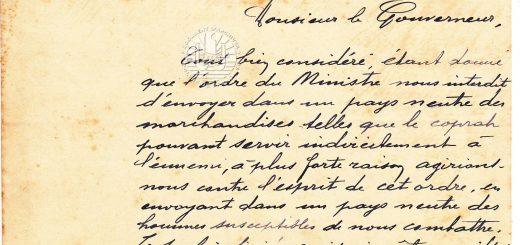 Monsieur le Gouverneur,
Tout bien considéré, étant donné
que l'ordre du Ministre nous interdit
d'envoyer dans un pays neutre des
marchandises telles que le coprah
pouvant servir indirectement à
l'ennemi, à plus forte raison agirions-
nous contre l'esprit de cet ordre, en
envoyant dans un pays neutre des
hommes susceptibles de nous combattre.